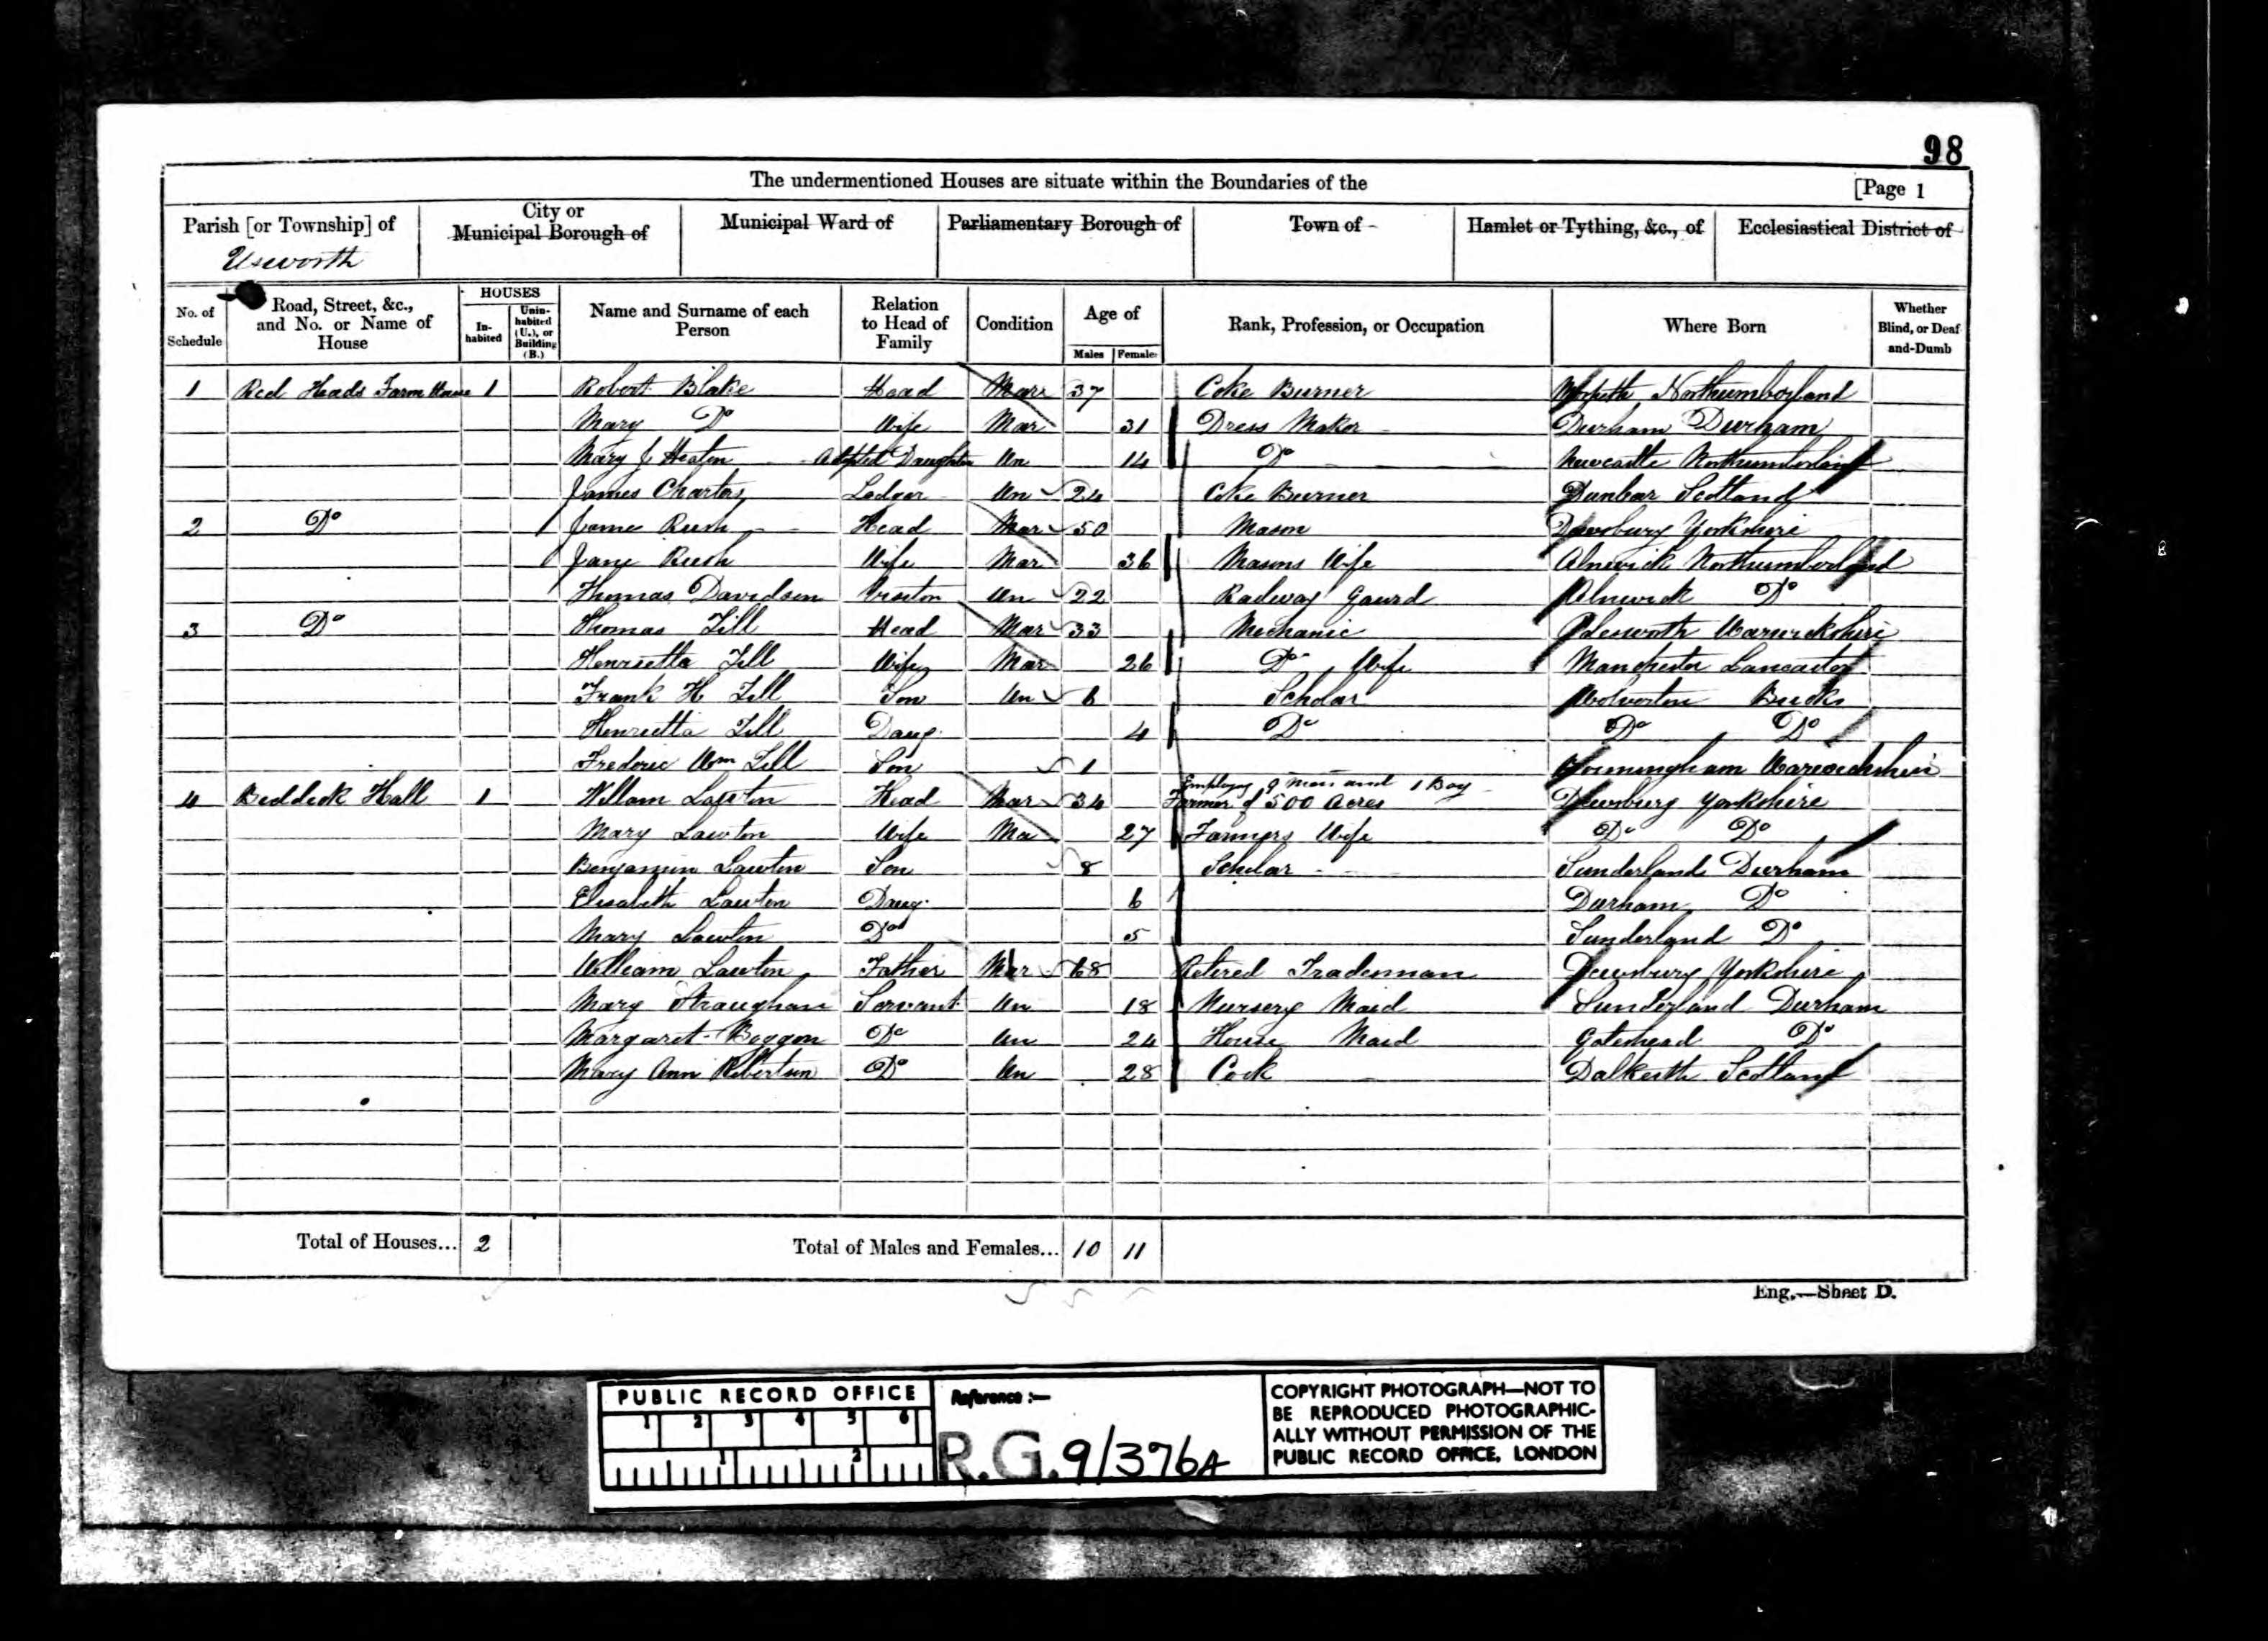 98
The undermentioned Houses are situate within the Boundaries of the [Page 1
Parish [or Township] of City or Municipal Borough of Municipal Ward of Parliamentary Borough of Town of Hamlet or Tything, &c., of Ecclesiastical District of
Usworth
No. of Schedule Road, Street, &c., and No. or Name of House HOUSES Inhabited Uninhabited (U.), or Building (B.) Name and Surname of each Person Relation to Head of Family Condition Age of Males Females Rank, Profession, or Occupation Where Born Whether Blind, or Deaf-and-Dumb
1 Red Heads Farm House 1 Robert Blake Head Mar 37 Coke Burner Morpeth Northumberland
Mary Do Wife Mar 31 Dress Maker Durham Durham
Mary J Heaton Adopted Daughter Un 14 Do Newcastle Northumberland
James Charters Lodger Un 24 Coke Burner Dunbar Scotland
2 Do James Rush Head Mar 50 Mason Dewsbury Yorkshire
Jane Rush Wife Mar 36 Masons Wife Alnwick Northumberland
Thomas Davidson Visitor Un 22 Railway Gaurd Alnwick Do
3 Do Thomas Till Head Mar 33 Mechanic Polesworth Warwickshire
Henrietta Till Wife Mar 26 Do Wife Manchester Lancaster
Frank H Till Son Un 6 Scholar Wolverton Bucks
Henrietta Till Daug 4 Do Do Do
Frederic Wm Till Son 1 Warwickshire
4 Biddick Hall 1 Willam Lawton Head Mar 34 Farmer of 500 Acres Employing 9 Men and 1 Boy Dewsbury Yorkshire
Mary Lawton Wife Ma 27 Farmers Wife Do Do
Benjamin Lawton Son 8 Scholar Sunderland Durham
Elisabeth Lawton Daug 6 Durham Do
Mary Lawton Do 5 Sunderland Do
William Lawton Father Mar 68 Retired Tradesman Dewsbury Yorkshire
Mary Straughan Servant Un 18 Nursery Maid Sunderland Durham
Margaret Boggon Do Un 24 House Maid Gateshead Do
Mary Ann Robertson Do Un 28 Cook Dalkeith Scotland
Total of Houses... 2 Total of Males and Females... 10 11
Eng.—Sheet D.
PUBLIC RECORD OFFICE
1 2 3 4 5 6
1 2
Reference :—
R.G. 9/3764
COPYRIGHT PHOTOGRAPH—NOT TO
BE REPRODUCED PHOTOGRAPHIC-
ALLY WITHOUT PERMISSION OF THE
PUBLIC RECORD OFFICE, LONDON